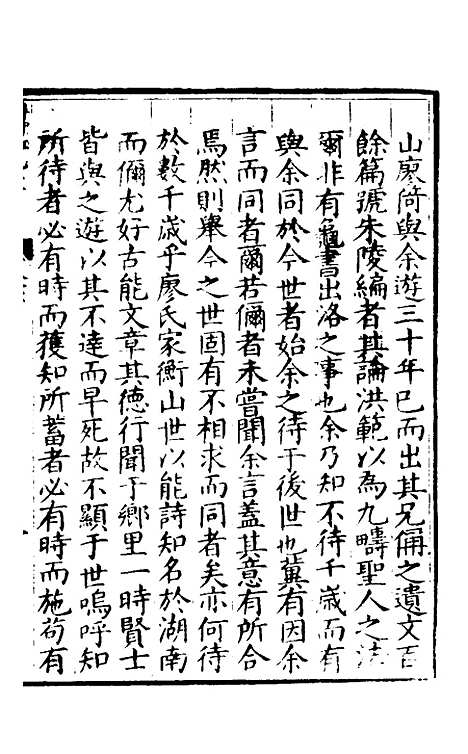 山廖倚與余遊三十年已而出其兄偁之遺文百
餘篇號朱陵編者其論洪範以為九疇聖人之法
爾非有龜書出洛之事也余乃知不待千歲而有
與余同於今世者始余之待于後世也冀有因余
言而同者爾若偁者未嘗聞余言蓋其意有所合
焉然則舉今之世固有不相求而同者矣亦何待
於數千歲乎廖氏家衡山世以能詩知名於湖南
而偁尤好古能文章其德行聞于鄉里一時賢士
皆與之遊以其不達而早死故不顯于世嗚呼知
所待者必有時而獲知所蓄者必有時而施苟有